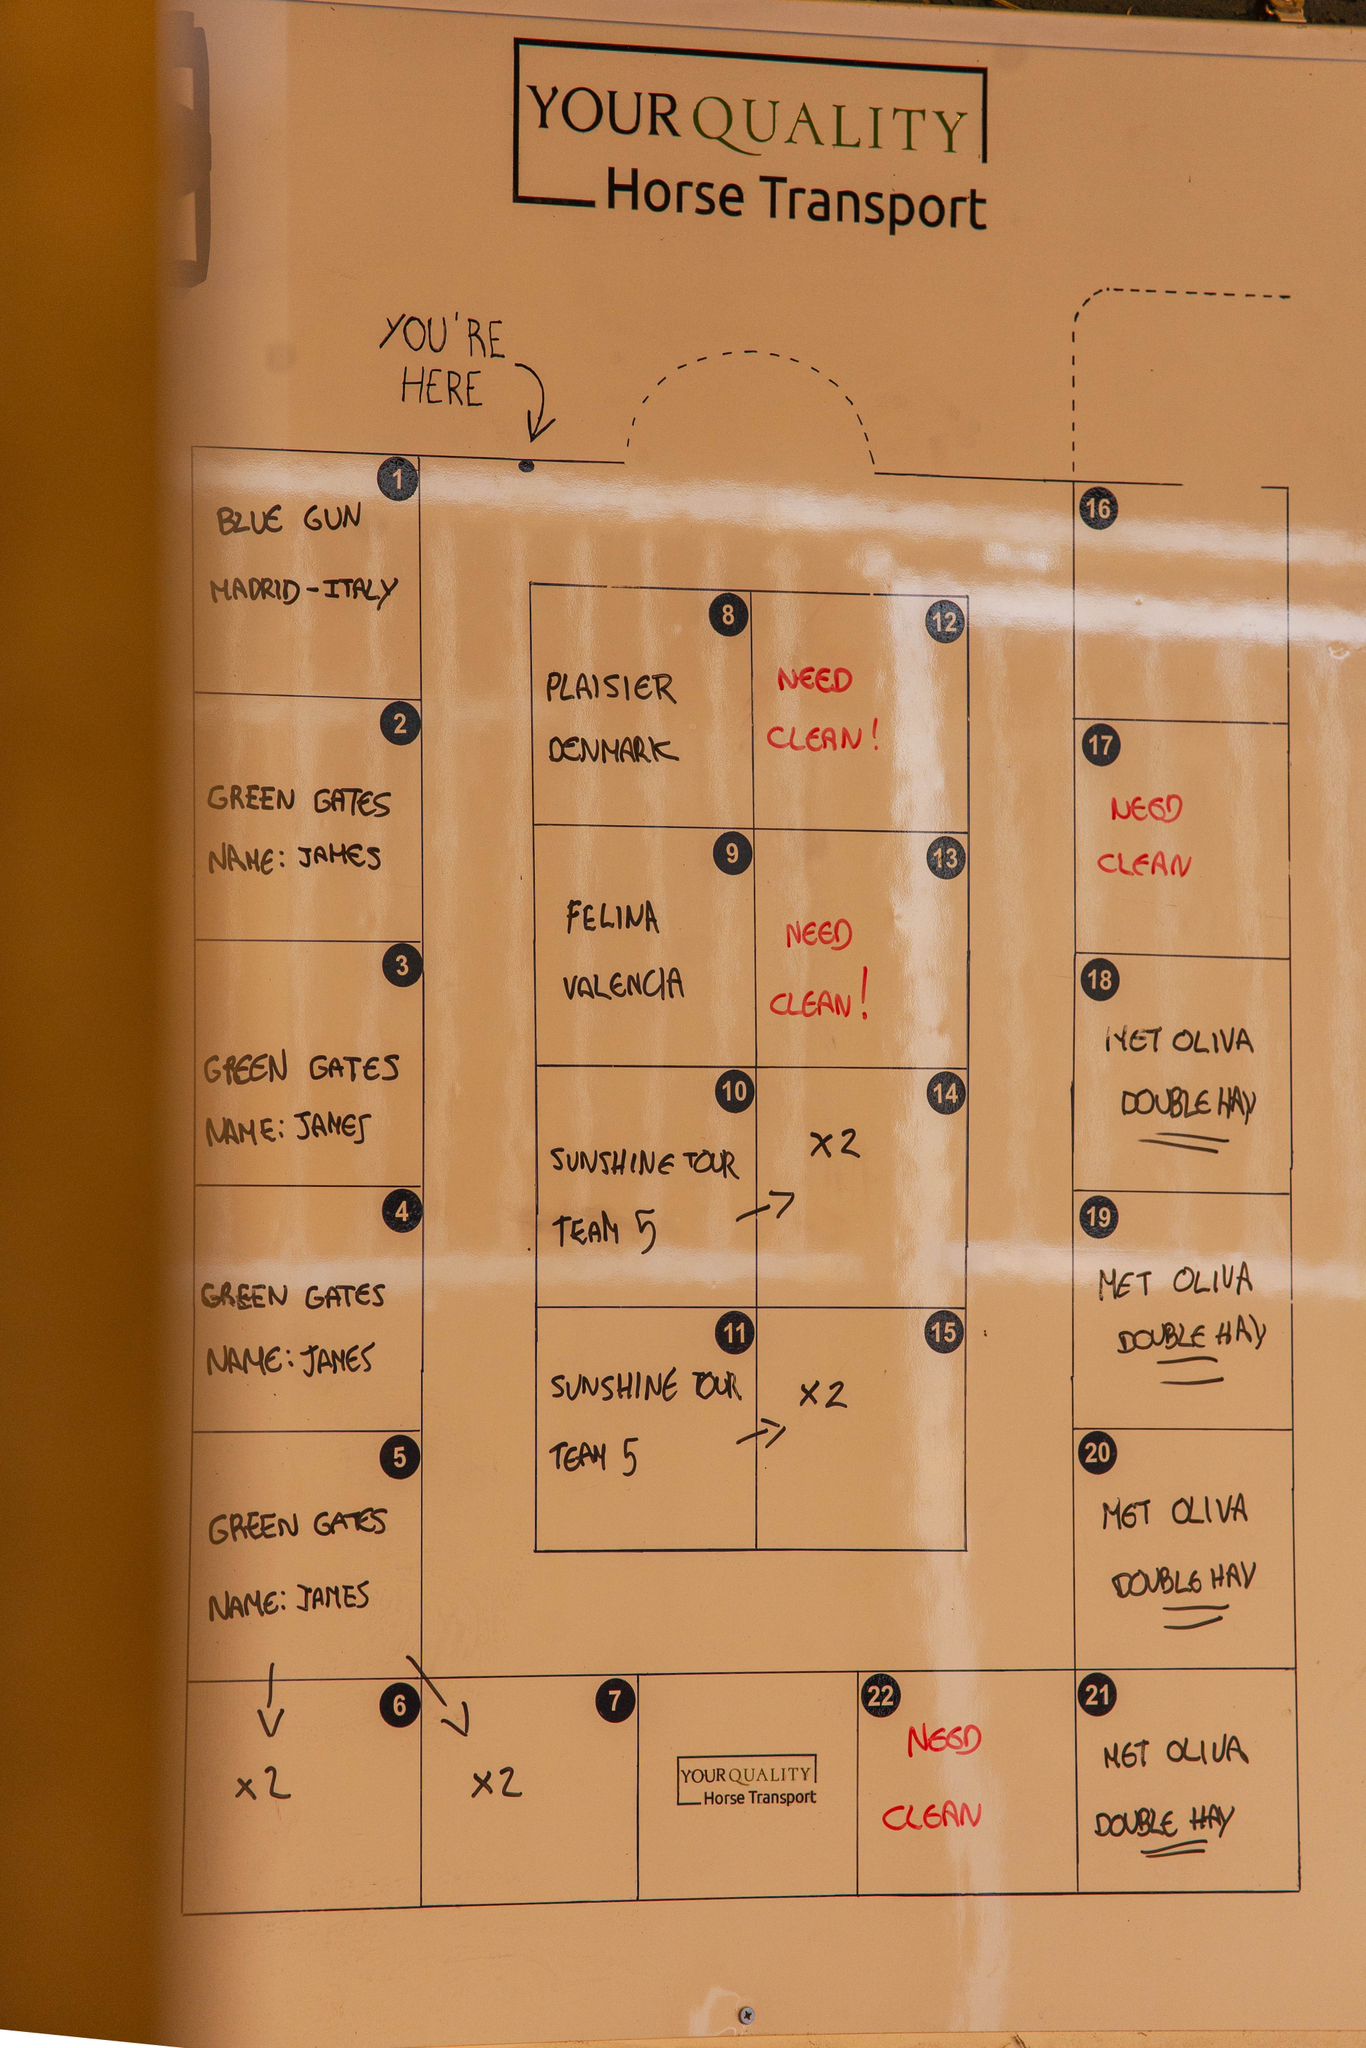 YOUR QUALITY
Horse Transport
YOU'RE
HERE
1
BLUE GUN
MADRID-ITALY
2
GREEN GATES
NAME: JAMES
3
GREEN GATES
NAME: JAMES
4
GREEN GATES
NAME: JAMES
5
GREEN GATES
NAME: JAMES
6
x2
7
x2
8
PLAISIER
DENMARK
9
FELINA
VALENCIA
10
SUNSHINE TOUR
TEAM 5
11
SUNSHINE TOUR
TEAM 5
12
NEED
CLEAN!
13
NEED
CLEAN!
14
x2
15
x2
16
17
NEED
CLEAN
18
MET OLIVA
DOUBLE HAY
19
MET OLIVA
DOUBLE HAY
20
MET OLIVA
DOUBLE HAY
21
MET OLIVA
DOUBLE HAY
22
NEED
CLEAN
YOUR QUALITY
Horse Transport